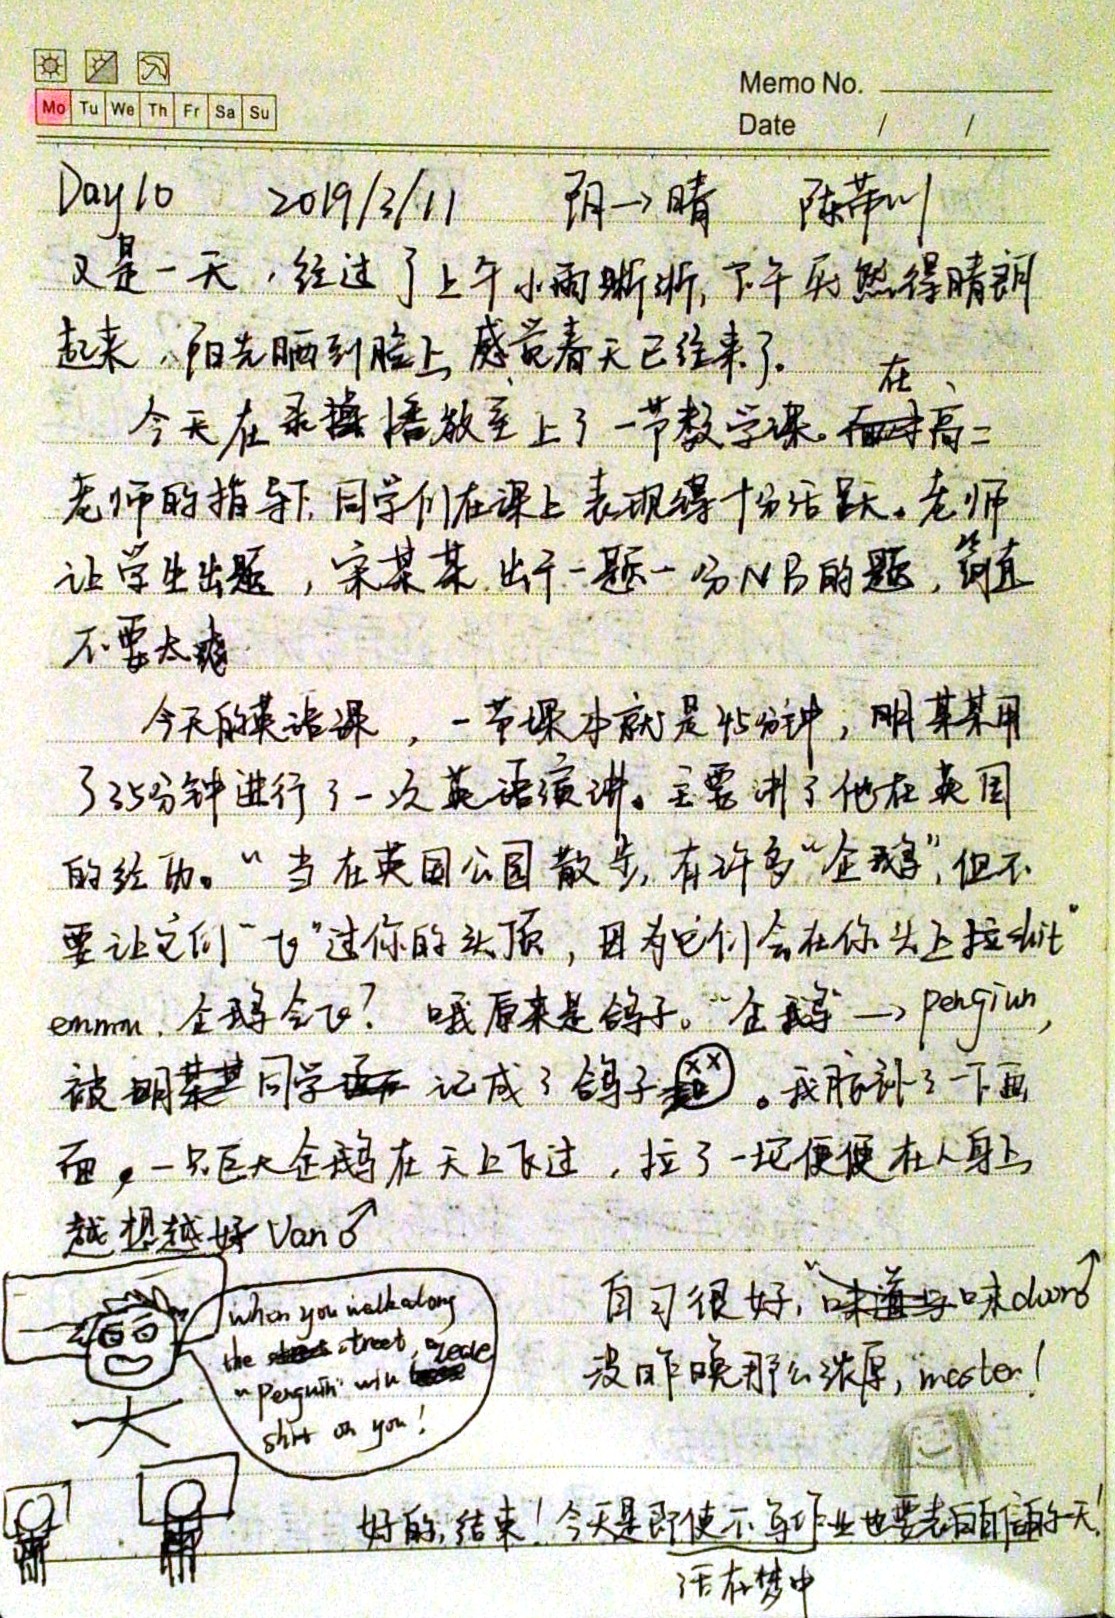 Memo No.
Mo Tu We Th Fr Sa Su
Date / /
Day10 2019/3/11 阴→晴 陈蒂川
又是一天，经过了上午小雨晰淅，下午突然得晴朗
起来，阳光晒到脸上，感觉春天已经来了。
在
今天在录播播放室上了一节数学课。高二
老师的指导下，同学们在课上表现得十分活跃。老师
让学生出题，宋某某出于一题一分NB的题，简直
不要太爽
今天的英语课，一节课本就是45分钟，明某某用
了35分钟进行了一次英语演讲。主要讲了他在英国
的经历。“当在英国公园散步，有许多“企鹅”，但不
要让它们“飞”过你的头顶，因为它们会在你头上拉shit”
emmm. 企鹅会飞？哦原来是鸽子。“企鹅”→pengiun，
被明某某同学记成了鸽子。我脑补了一下画
面，一只巨大企鹅在天上飞过，拉了一坨便便在人身上
越想越好Van♂
自习很好，“味道 味dark♂
没昨晚那么浓厚，master！
When you walkalong
the street, a
"Penguin" will
shit on you!
好的，结束！今天是即使不写作业也要表白自信的一天！
活在梦中